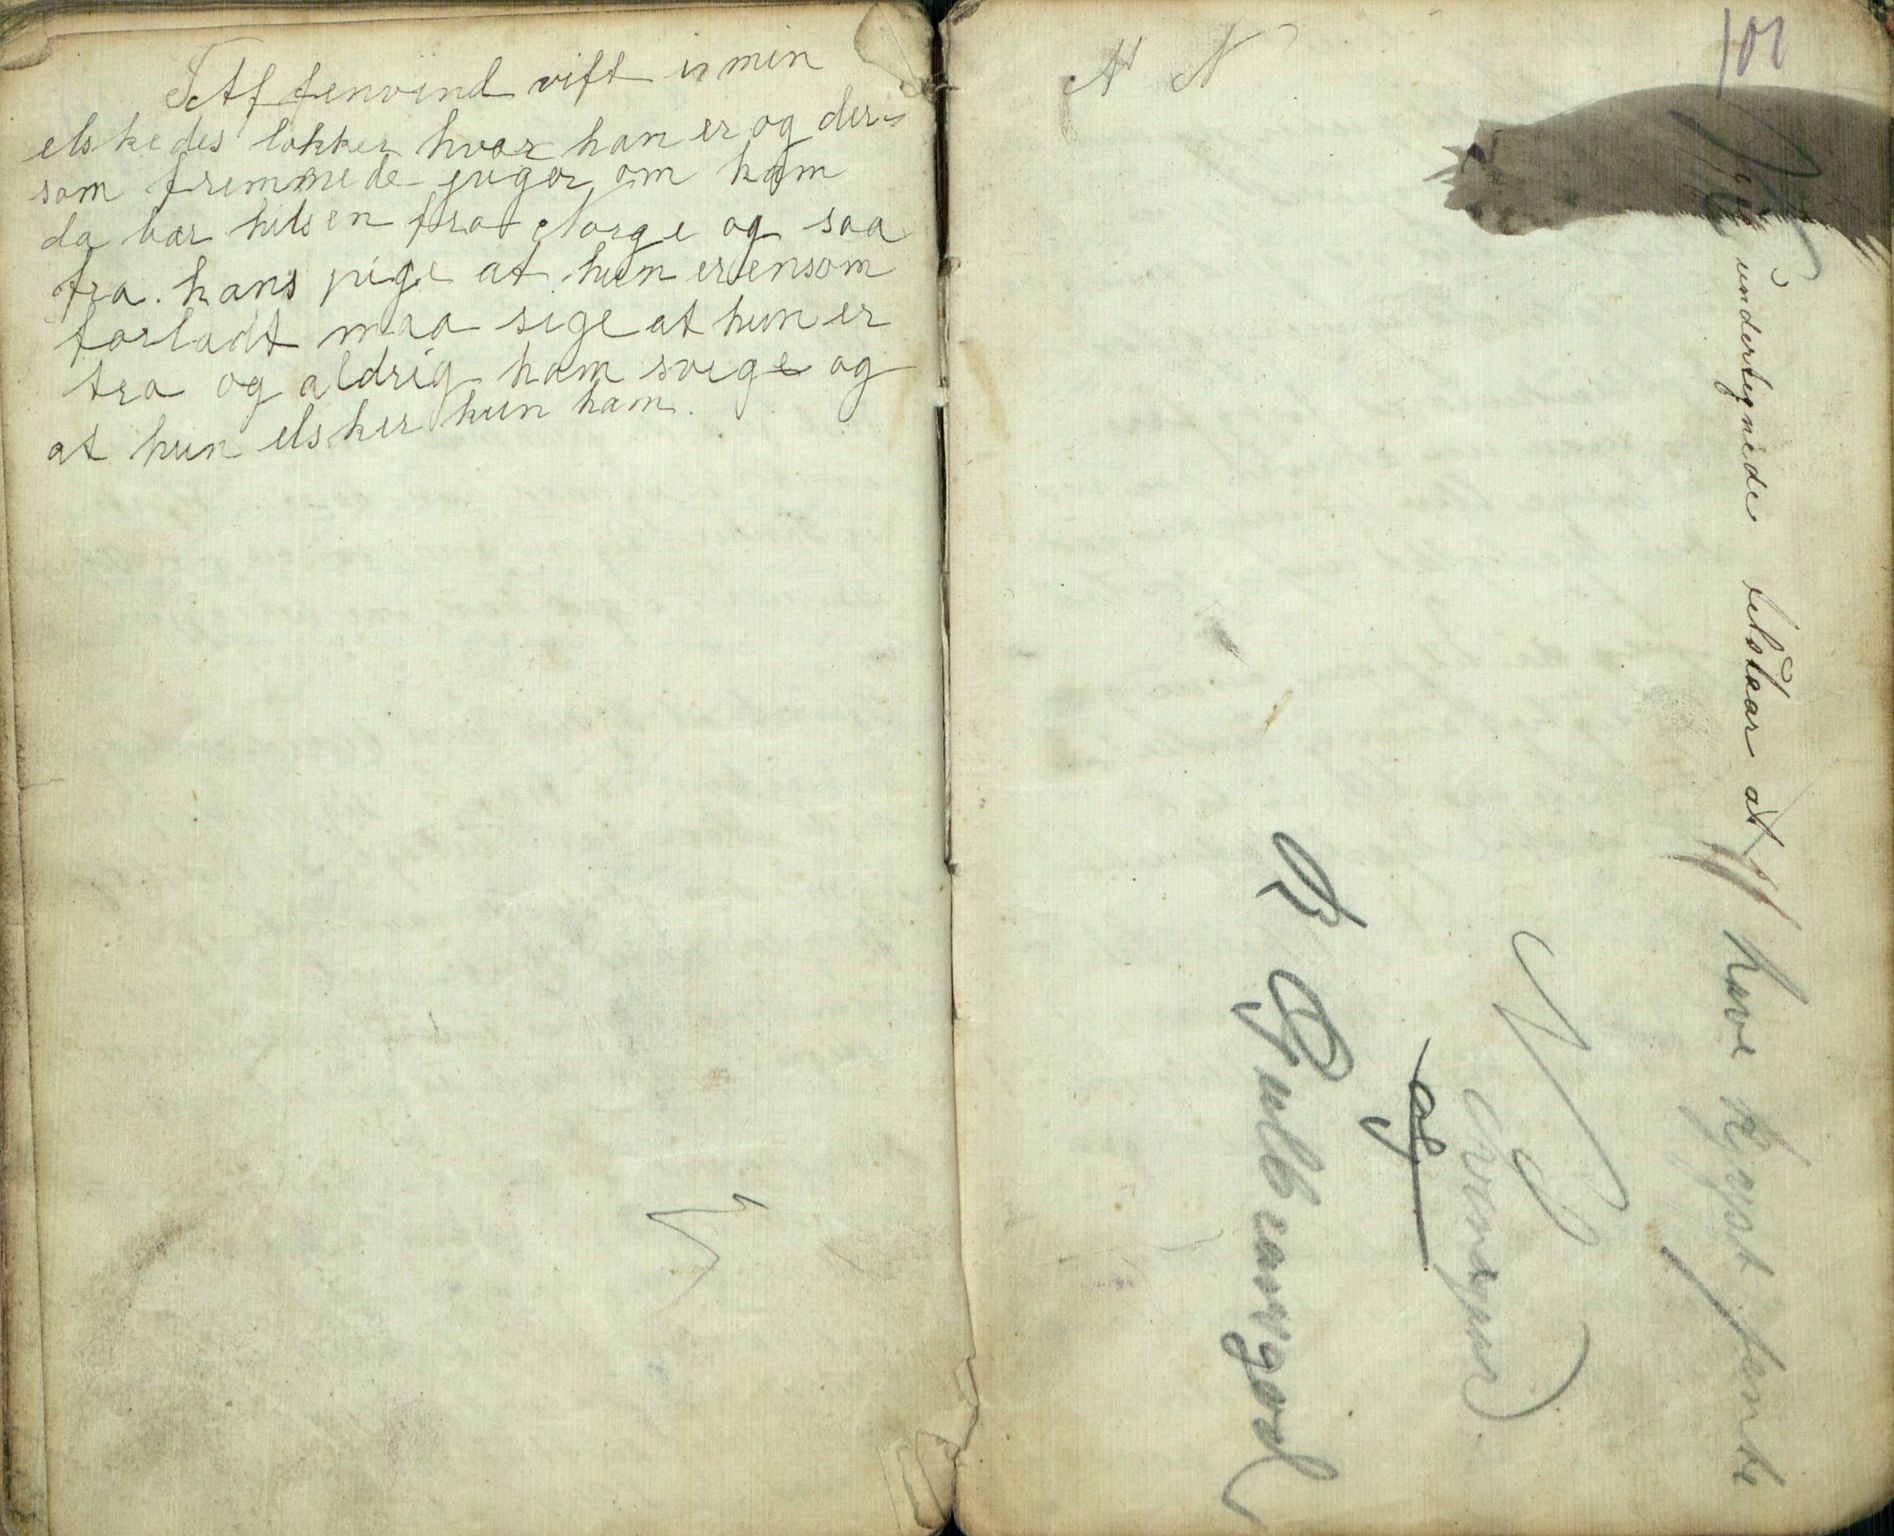 Aftenvind vift i min
elskedes lokker hvor han er og der-
som fremmede piger om ham
da bær hilsen fra Norge og saa
fra hans pige at hun er ensom
forladt maa sige at hun er
tro og aldrig ham svige og
at hun elsker kun ham.
N N
101
undertegnede tilstaar at
have kysst jente
N
og
Gulbransgood